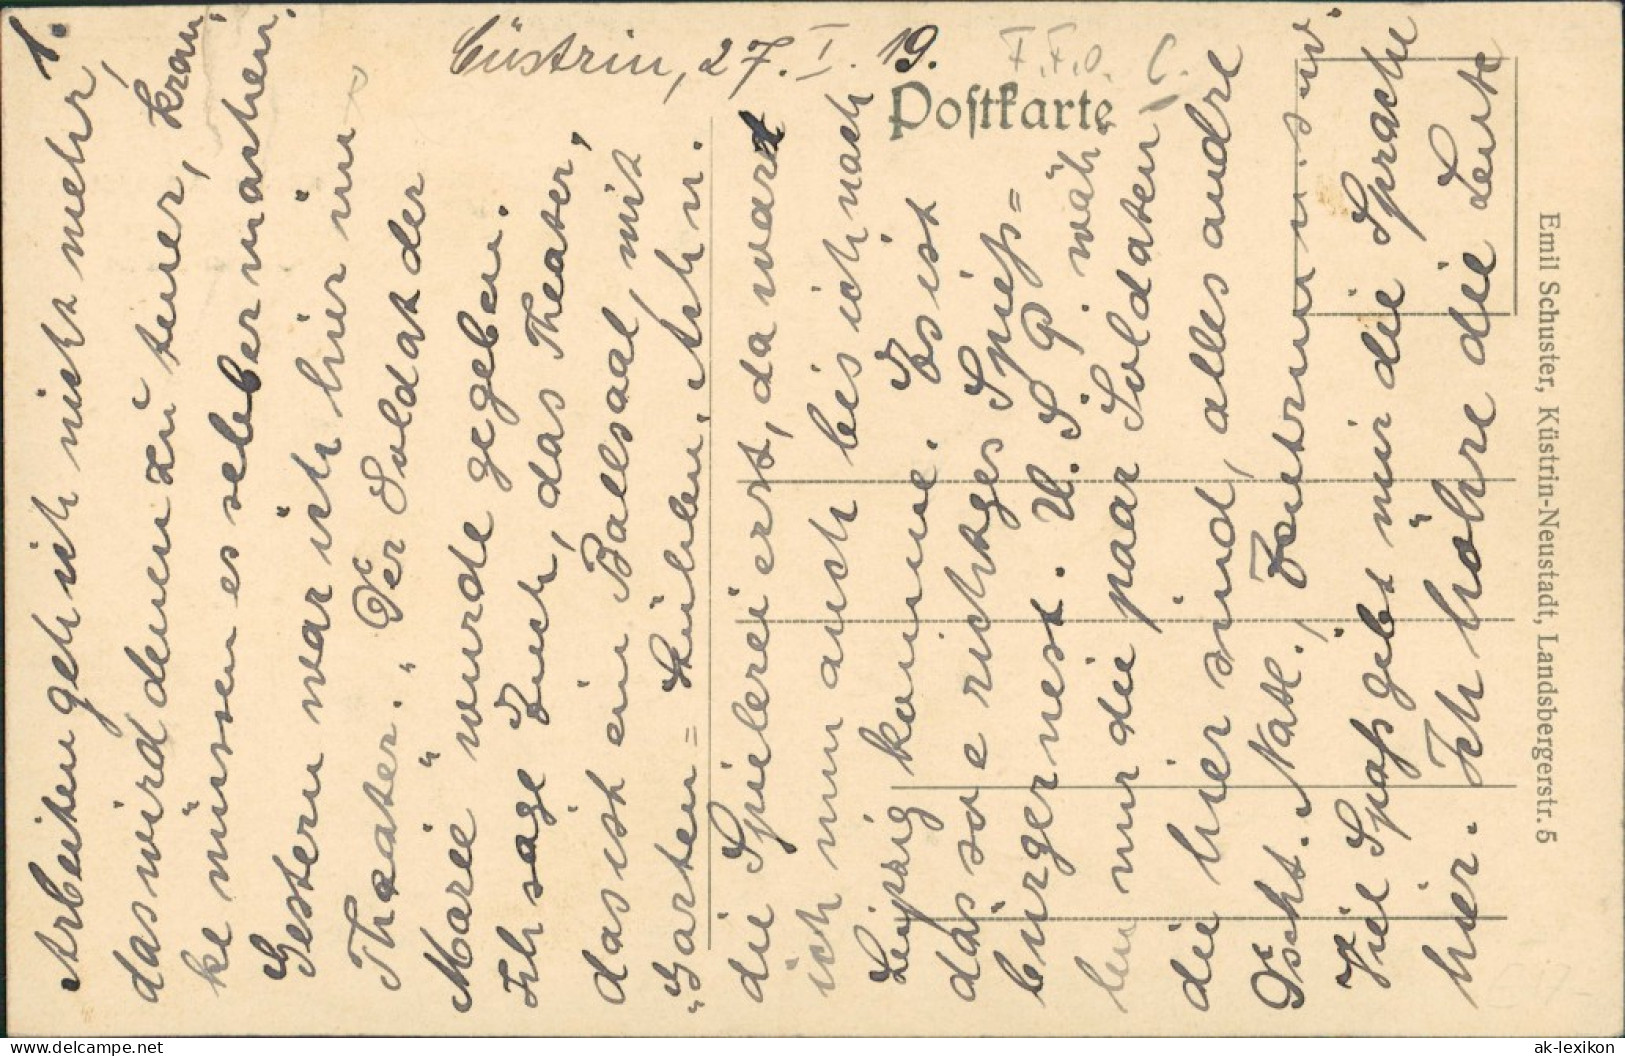 Cüstrin, 27. I. 19.
F.F.O. C.
Postkarte
1.
Arbeiten geh ich nicht mehr,
das wird denen zu teuer, Kran
ke müssen es selber machen.
Gestern war ich hier im
Theater. "Der Soldat der
Marie" wurde gegeben.
Ich sage Euch, das Theater,
das ist ein Ballsaal, mit
"Garten=Säulen. Ach n.
die Spielerei erst, da ward
ich nun auch bis ich nach
Leipzig komme. Es ist
das so e richtges Spieß=
bürgernest. U.S.P. wäh
len nur die paar Soldaten
die hier sind, alles andre
Dscht. Natl., Zentrum usw
Viel Spaß gibt mir die Sprache
hier. Ich höhre die Leute
Emil Schuster, Küstrin-Neustadt, Landsbergerstr. 5
© ak-ansichtskarten.de
ak-lexikon